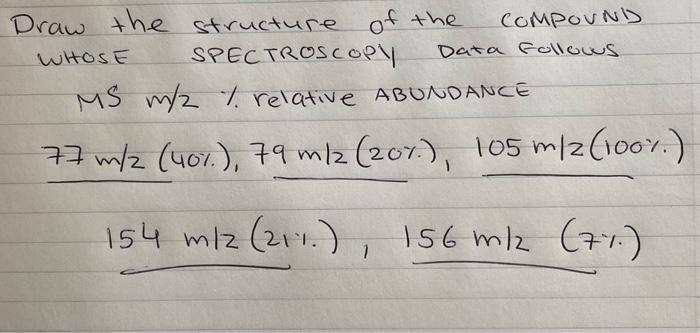 Draw the structure of the COMPOUND
WHOSE SPECTROSCOPY Data Follows
MS m/z % relative ABUNDANCE
77 m/z (40%), 79 m/z (20%), 105 m/z (100%)
154 m/z (21%), 156 m/z (7%)